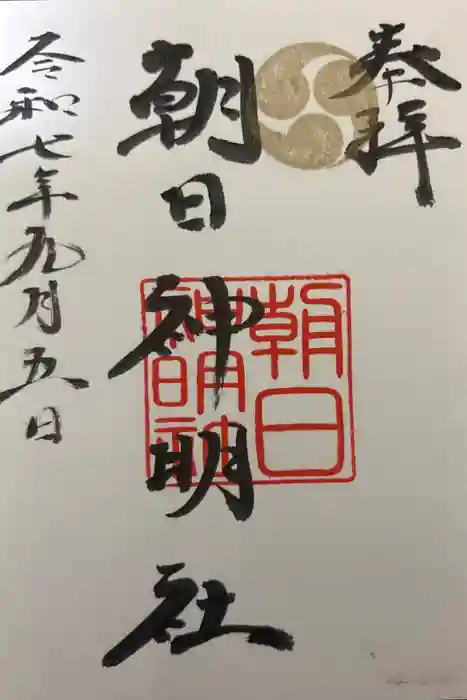 奉拝
朝日神明社
朝日
神明
社
令和七年九月五日